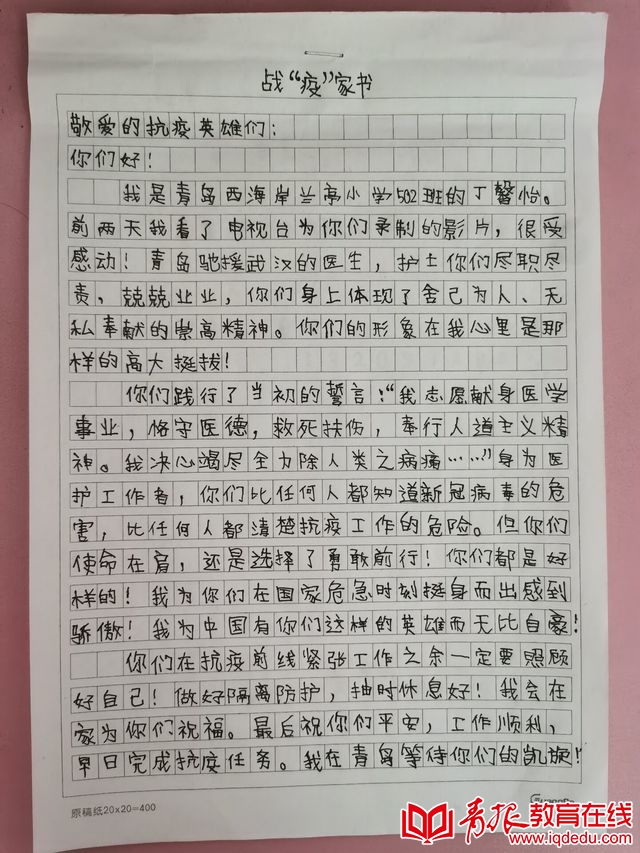 战“疫”家书
敬爱的抗疫英雄们：
你们好！
我是青岛西海岸兰亭小学502班的丁馨怡。
前两天我看了电视台为你们录制的影片，很受
感动！青岛驰援武汉的医生，护士你们尽职尽
责，兢兢业业，你们身上体现了舍己为人、无
私奉献的崇高精神。你们的形象在我心里是那
样的高大挺拔！
你们践行了当初的誓言：“我志愿献身医学
事业，恪守医德，救死扶伤，奉行人道主义精
神。我决心竭尽全力除人类之病痛……”身为医
护工作者，你们比任何人都知道新冠病毒的危
害，比任何人都清楚抗疫工作的危险。但你们
使命在肩，还是选择了勇敢前行！你们都是好
样的！我为你们在国家危急时刻挺身而出感到
骄傲！我为中国有你们这样的英雄而无比自豪！
你们在抗疫前线紧张工作之余一定要照顾
好自己！做好隔离防护，抽时休息好！我会在
家为你们祝福。最后祝你们平安，工作顺利，
早日完成抗疫任务。我在青岛等待你们的凯旋！
原稿纸20×20=400
青报教育在线
www.iqdedu.com